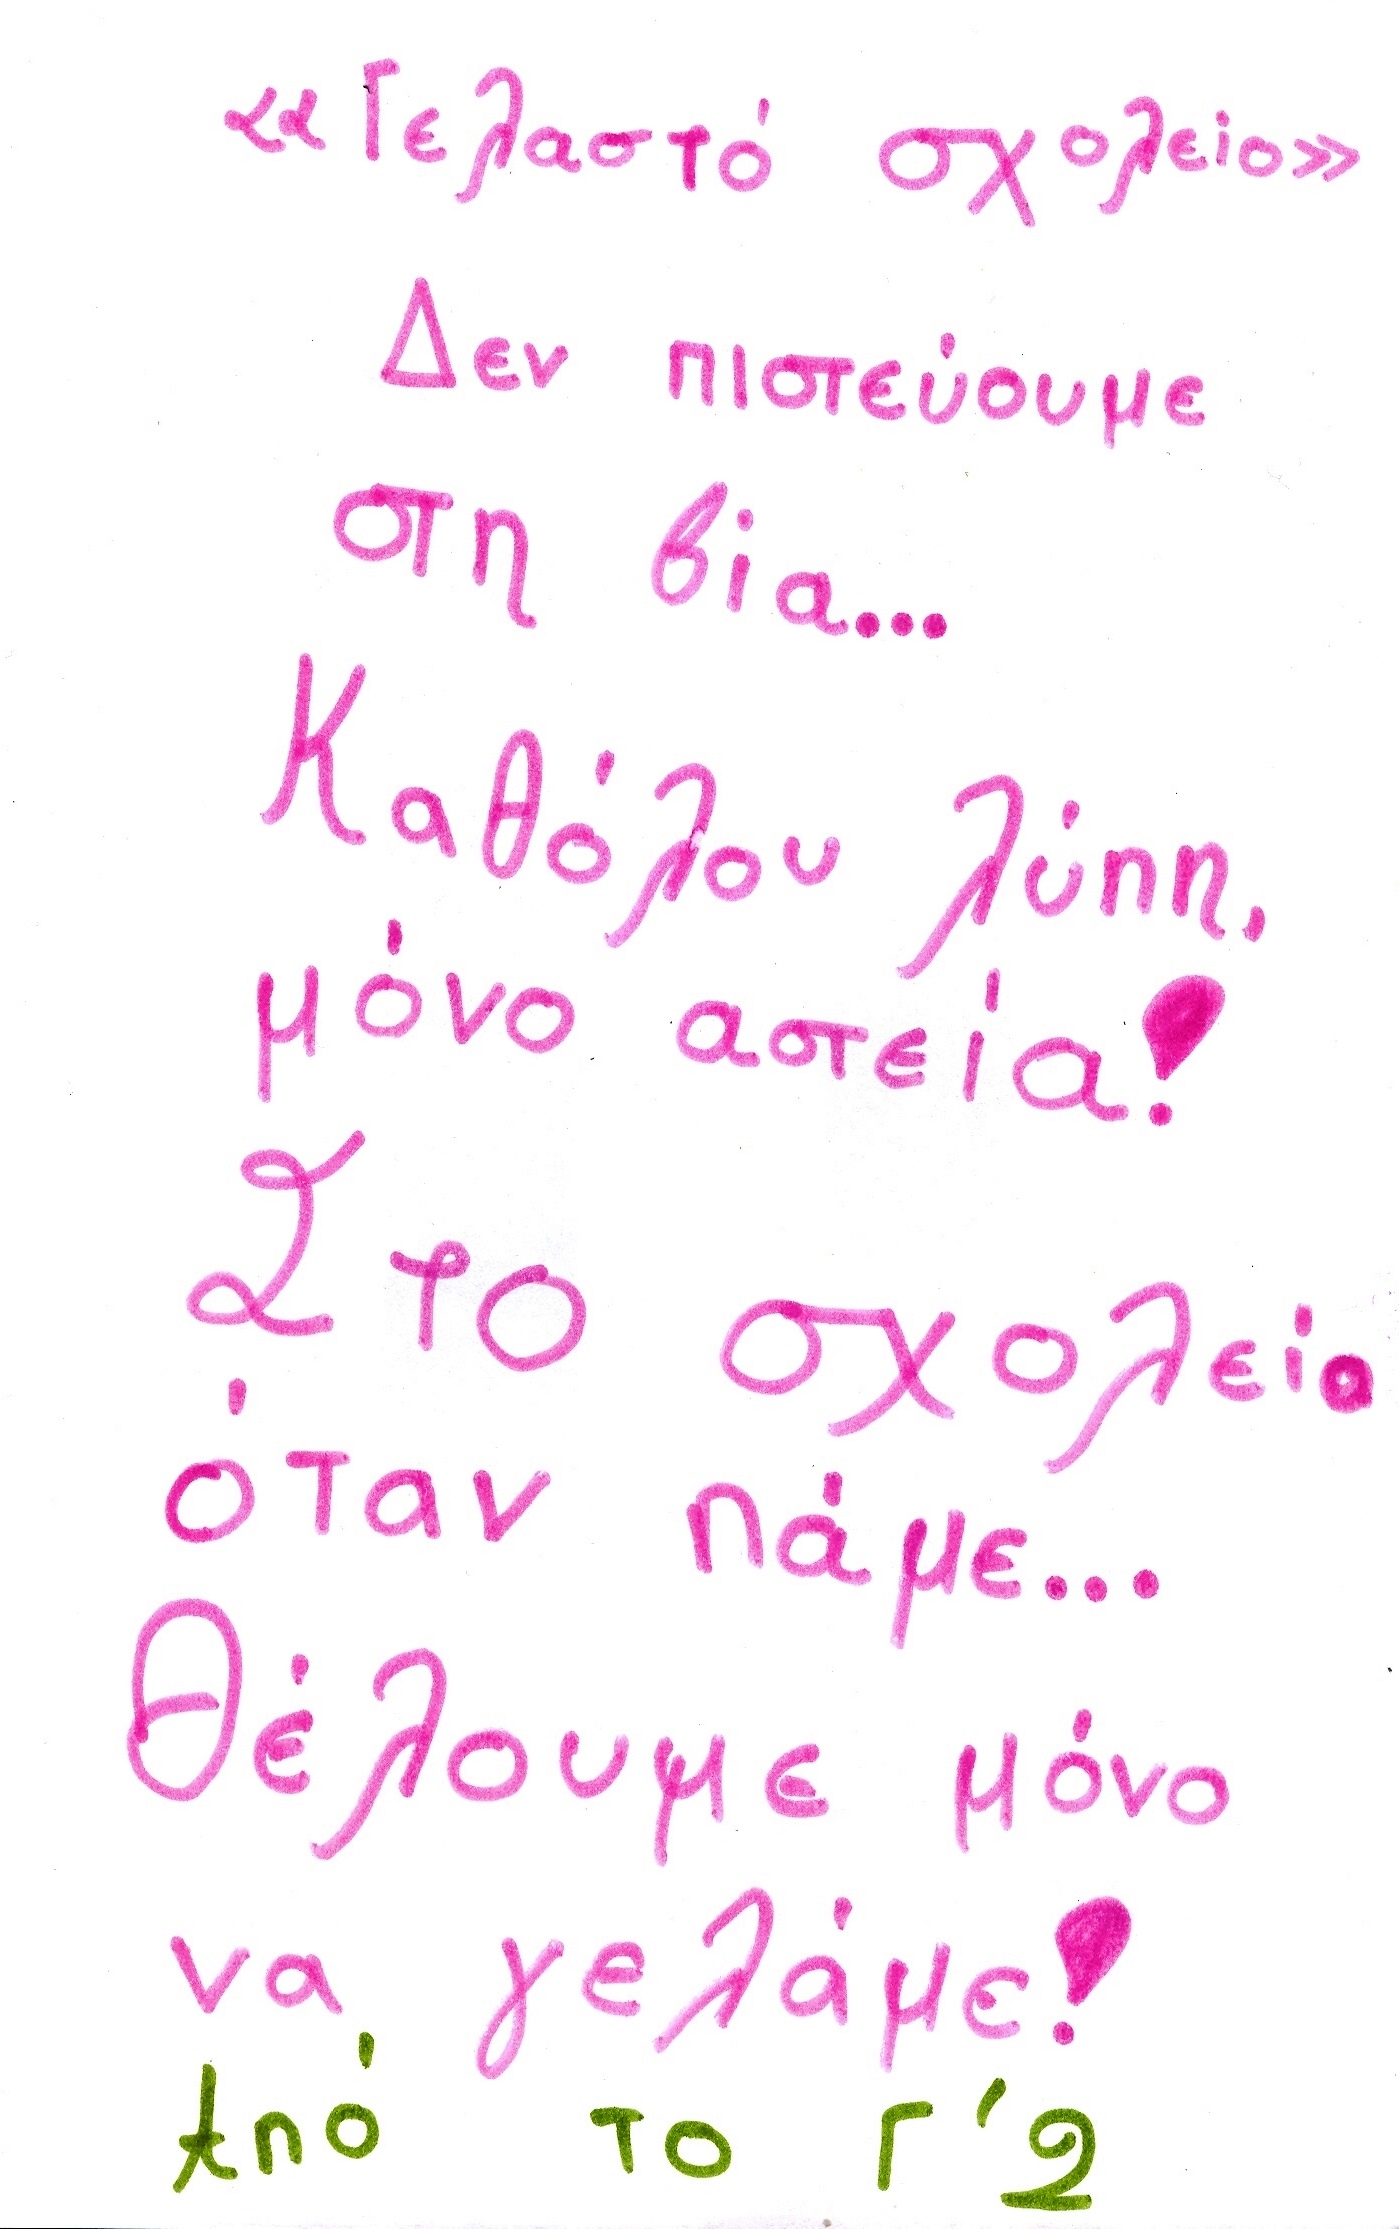 «Γελαστό σχολείο»
Δεν πιστεύουμε
στη βία...
Καθόλου λύπη,
μόνο αστεία!
Στο σχολείο
όταν πάμε...
Θέλουμε μόνο
να γελάμε!
Από το Γ'2